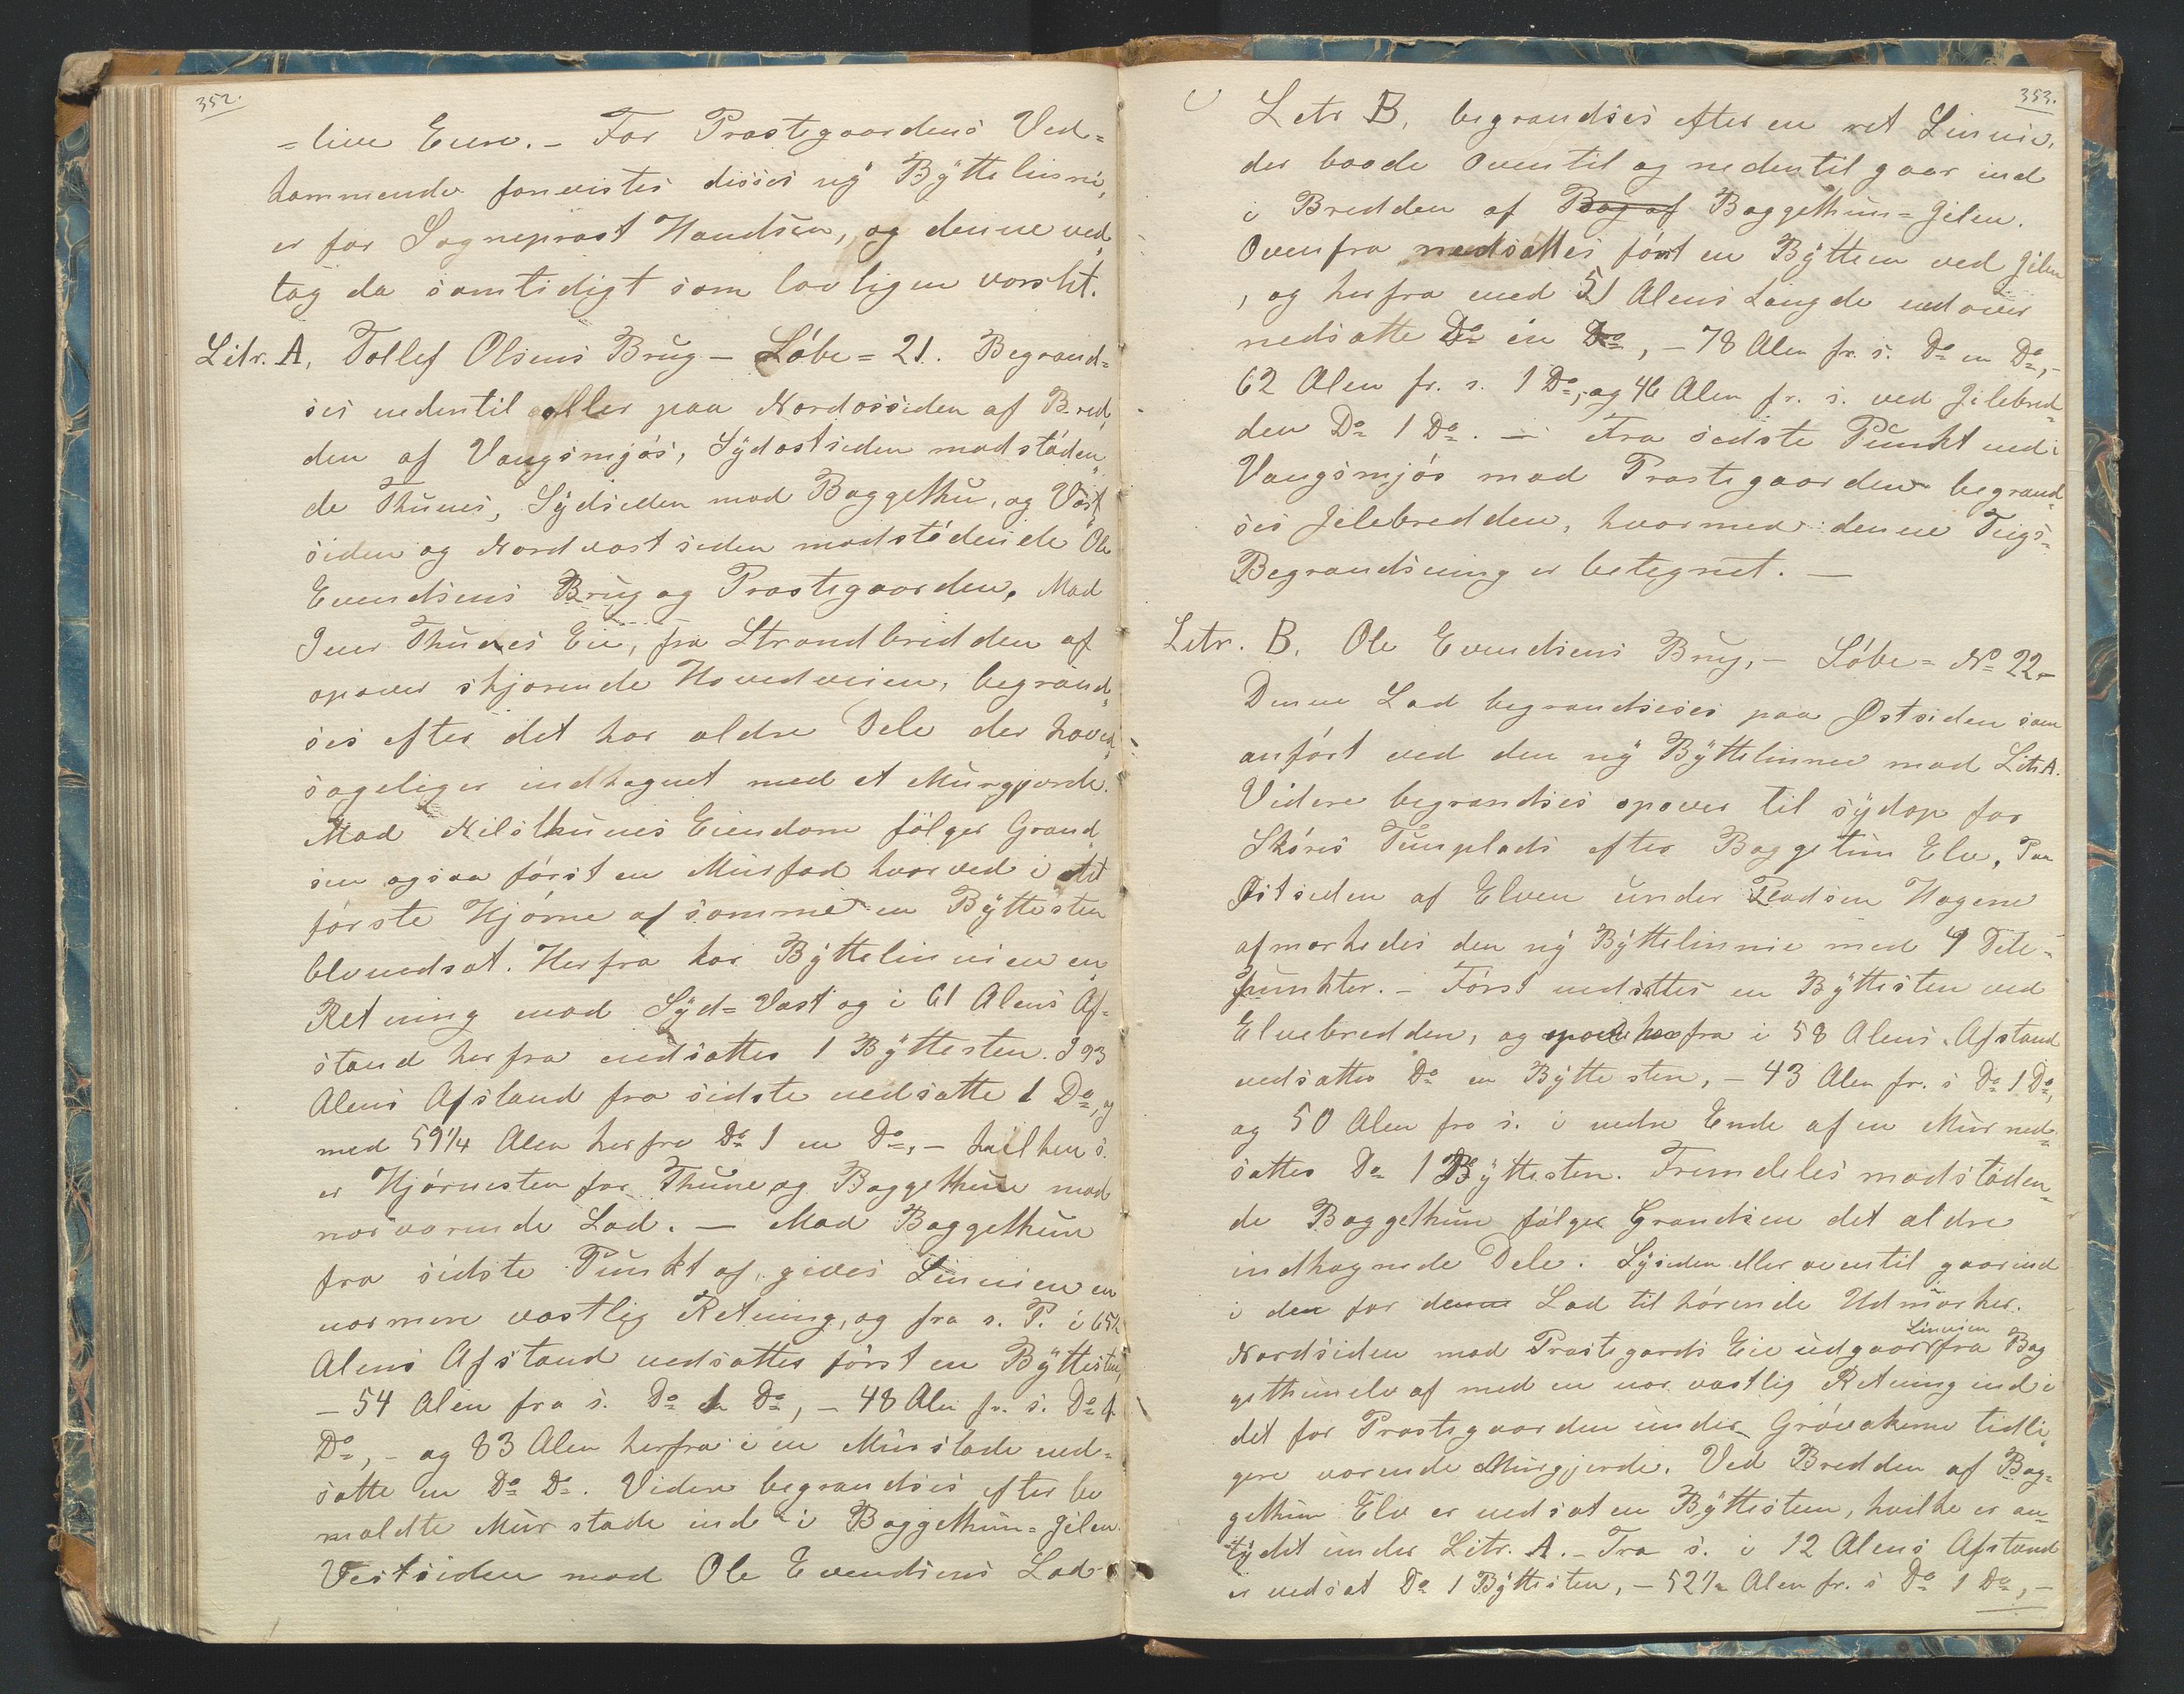 352.
=live Eiere. – For Præstegaardens Ved=
kommende forevistes disses ny Byttelinni,
er for Sogneprest Handsen, og denne ved
tog da samtidigt som lovligen vorslet.
Litr. A, Tollef Olsens Brug – Löbe = 21. Begrænd=
ses nedentil eller paa Nordossiden af Bred
den af Vangsmjös, Sydostsiden modstöden
de Thunes, Sydsiden mod Baggethu, og Væst
siden og Nordvæstsiden modstödende Ole
Evendsens Brug og Præstegaarden. Mod
Iver Thunes Eie, fra Strandbredden af
opover skjærende Hovedveien, begrænd
ses efter det har ældre Dele der hoved
sageliger indhegnet med et Murgjerde.
Mod Nilsthunes Eiendom fölger Grænd
sen ogsaa först en Murfod hvorved i det
förste Hjörne af samme en Byttesten
blev nedsat. Herfra har Byttelinnien en
Retning mod Syd=Væst og i 61 Alens Af=
stand herfra nedsattes 1 Byttesten. I 93
Alens Afstand fra sidste nedsatte 1 Do, og
med 59 1/4 Alen herfra Do 1 en Do, – hvilken s.
er Hjörnesten for Thune og Baggethun mod
nærværende Lod. – Mod Baggethun
fra sidste Punkt af, gives Linnien en
nor mere væstlig Retning, og fra s. P. i 65 1/2
Alens Afstand nedsattes först en Byttesten,
– 54 Alen fra s. Do 1 Do, – 48 Alen fr. s. Do 1
Do, – og 83 Alen herfra i en Murstade ned=
satte en Do Do. Videre begrændses efter be
mældte Murstade ind i Baggethun=Gilen.
Vestsiden mod Ole Evendsens Lod
353.
Letr B, begrændses efter en ret Linnie,
der baade Oventil og nedentil gaar ind
i Bredden af Bag af Baggethun=Gilen.
Ovenfra nedsattes först en Bytteen ved Gilen
, og herfra med 51 Alens Længde nedover
nedsatte Do en Do, – 78 Alen fr. s. Do en Do, –
62 Alen fr. s. 1 Do, og 46 Alen fr. s. ved Gilebred=
den Do 1 Do. – Fra sidste Punkt ned i
Vangsmjös mod Præstegaarden begrænd
ses Gilebredden, hvormed denne Teigs=
Begrændsning er betegnet. –
Letr. B. Ole Evendsens Brug, – Löbe = No 22. –
Denne Lod begrændseses paa Østsiden som
anfört ved den ny Byttelinnie mod Litr A.
Videre begrændses opover til sydop for
Skörs Tunplads efter Baggetun Elv, Paa
Østsiden af Elven under Pladsen Hagene
afmærkedes den ny Byttelinnie med 4 Dele=
punkter. – Först nedsattes en Byttesten ved
Elvebredden, og herfra i 58 Alens Afstand
nedsattes Do en Byttesten, – 43 Alen fr. s Do 1 Do,
og 50 Alen fra s. i nedre Ende af en Mur ned=
sattes Do 1 Byttesten. Fremdeles modstöden=
de Baggethun fölger Grændsen det ældre
indhegnede Dele. Sysiden eller oventil gaar ind
i den for denne Lod tilhörende Udmarker.
Nordsiden mod Præstegards Eie udgaar Linnien fra Bag
gethunelv af med en nor væstlig Retning ind i
det for Præstegaarden under Grövakerne tidli
gere værende Murgjerde. Ved Bredden af Bag=
gethun Elv er nedsat en Byttesten, hvilke er an=
tydet under Litr. A. – Fra s. i 12 Alens Afstand
er nedsat Do 1 Byttesten, – 52 1/2 Alen fr. s Do 1 Do, –